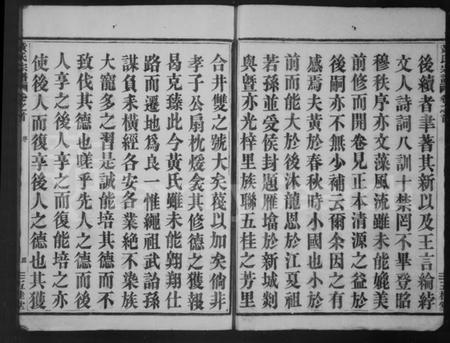 後續者聿著其新以及王言綸綍
文人詩詞八訓十禁罔不畢登昭
穆秩序亦文藻風流雖未能媲美
前修而開卷見正本清源之益於
後嗣亦不無少補云爾余因之有
感焉夫黃於春秋時小國也小於
前而能大於後沐龍恩於江夏相
若孫並受侯封題雁墖於新城剡
與暨亦光梓里族聯五桂之芳里
合井雙之號大矣蔑以加矣倘非
孝子公扇枕煖衾其修德之獲報
曷克臻此今黃氏雖未能翺翔仕
路而遷地為良一惟繩祖武詒孫
謀負耒橫經各安各業絕不染族
大寵多之習是誠能培其德而不
致伐其德也嗟乎先人之德而後
人享之後人享之而復能培之亦
使後人而復享後人之德也其獲